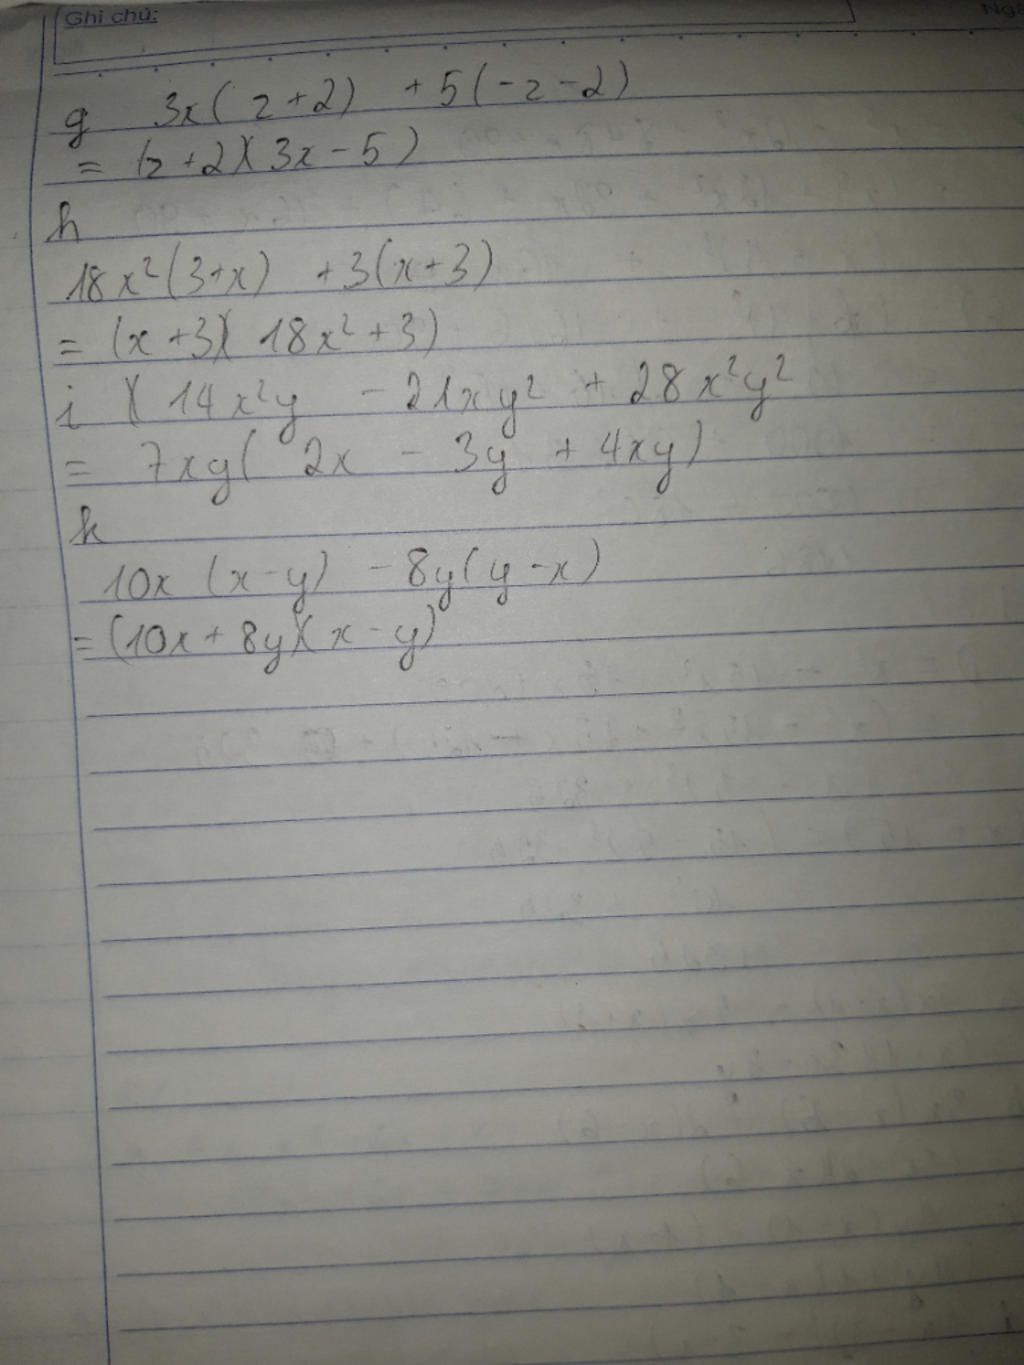 Ghi chú:
g 3x(z+2) +5(-z-2)
= (z+2)(3x-5)
h
18x²(3+x) +3(x+3)
= (x+3)(18x²+3)
i) 14x²y - 21xy² + 28x²y²
= 7xy( 2x - 3y + 4xy)
k
10x (x-y) - 8y(y-x)
= (10x+8y)(x-y)